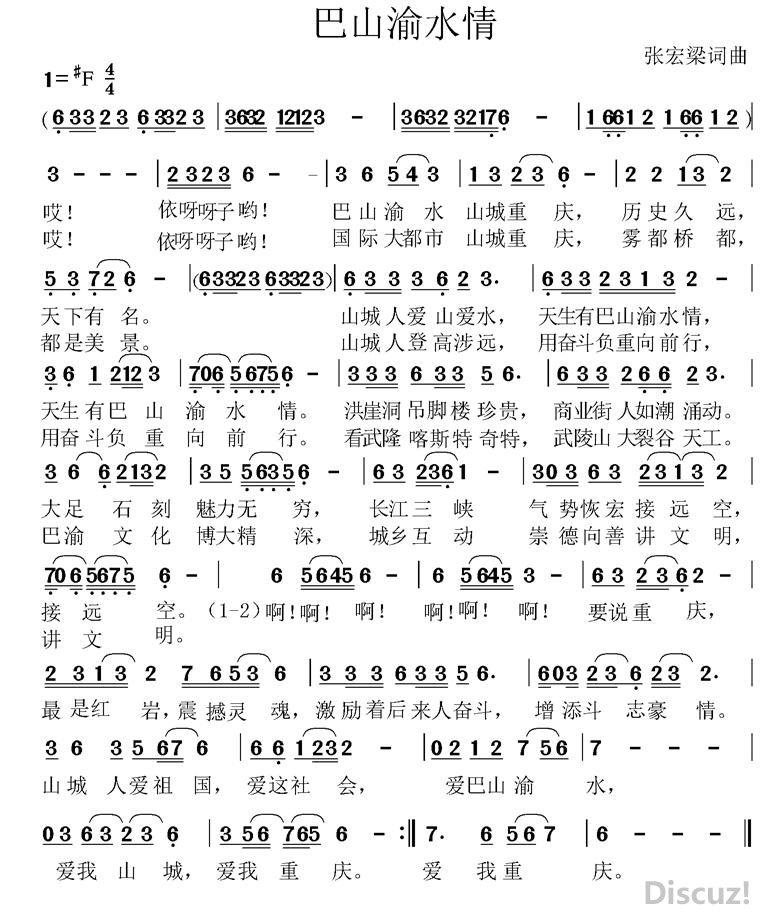 巴山渝水情
张宏梁词曲
1=#F 4/4
(6 3 3 2 3 6 3 3 2 3 | 3 6 3 2 1 2 1 2 3 - | 3 6 3 2 3 2 1 7 6 - | 1 6 6 1 2 1 6 6 1 2)
3 - - - | 2 3 2 3 6 - - | 3 6 5 4 3 | 1 3 2 3 6 - | 2 2 1 3 2 |
哎! 依呀呀子哟! 巴山渝水 山城重 庆, 历史久 远,
哎! 依呀呀子哟! 国际大都市 山城重 庆, 雾都桥 都,
5 3 7 2 6 - | (6 3 3 2 3 6 3 3 2 3) | 6 3 3 3 6 2 3. | 6 3 3 2 3 1 3 2 - |
天下有 名。 山城人爱山爱水, 天生有巴山渝水情,
都是美 景。 山城人登高涉远, 用奋斗负重向前行,
3 6 1 2 1 2 3 | 7 0 6 5 6 7 5 6 - | 3 3 3 6 3 3 5 6. | 6 3 3 2 6 6 2 3. |
天生有巴 山 渝 水 情。 洪崖洞吊脚楼珍贵, 商业街人如潮涌动。
用奋斗负 重 向 前 行。 看武隆喀斯特奇特, 武陵山大裂谷天工。
3 6 6 2 1 3 2 | 3 5 5 6 3 5 6 - | 6 3 2 3 6 1 - | 3 0 3 6 3 2 3 1 3 2 |
大足 石 刻 魅力无 穷, 长江三 峡 气势恢宏接远空,
巴渝 文 化 博大精 深, 城乡互 动 崇德向善讲文明,
7 0 6 5 6 7 5 6 - | 6 5 6 4 5 6 - | 6 5 6 4 5 3 - | 6 3 2 3 6 2 - |
接 远 空。(1-2)啊!啊! 啊! 啊!啊! 啊! 要说重 庆,
讲 文 明。
2 3 1 3 2 7 6 5 3 6 | 3 3 3 6 3 3 5 6. | 6 0 3 2 3 6 2 3 2. |
最 是红 岩,震撼灵 魂, 激励着后来人奋斗, 增添斗 志豪 情。
3 6 3 5 6 7 6 | 6 6 1 2 3 2 - | 0 2 1 2 7 5 6 | 7 - - - |
山城 人爱祖 国, 爱这社 会, 爱巴山渝 水,
0 3 6 3 2 3 6 | 3 5 6 7 6 5 6 - - :‖ 7. 6 5 6 7 | 6 - - - |
爱我 山 城, 爱我 重 庆。 爱 我重 庆。
Discuz!